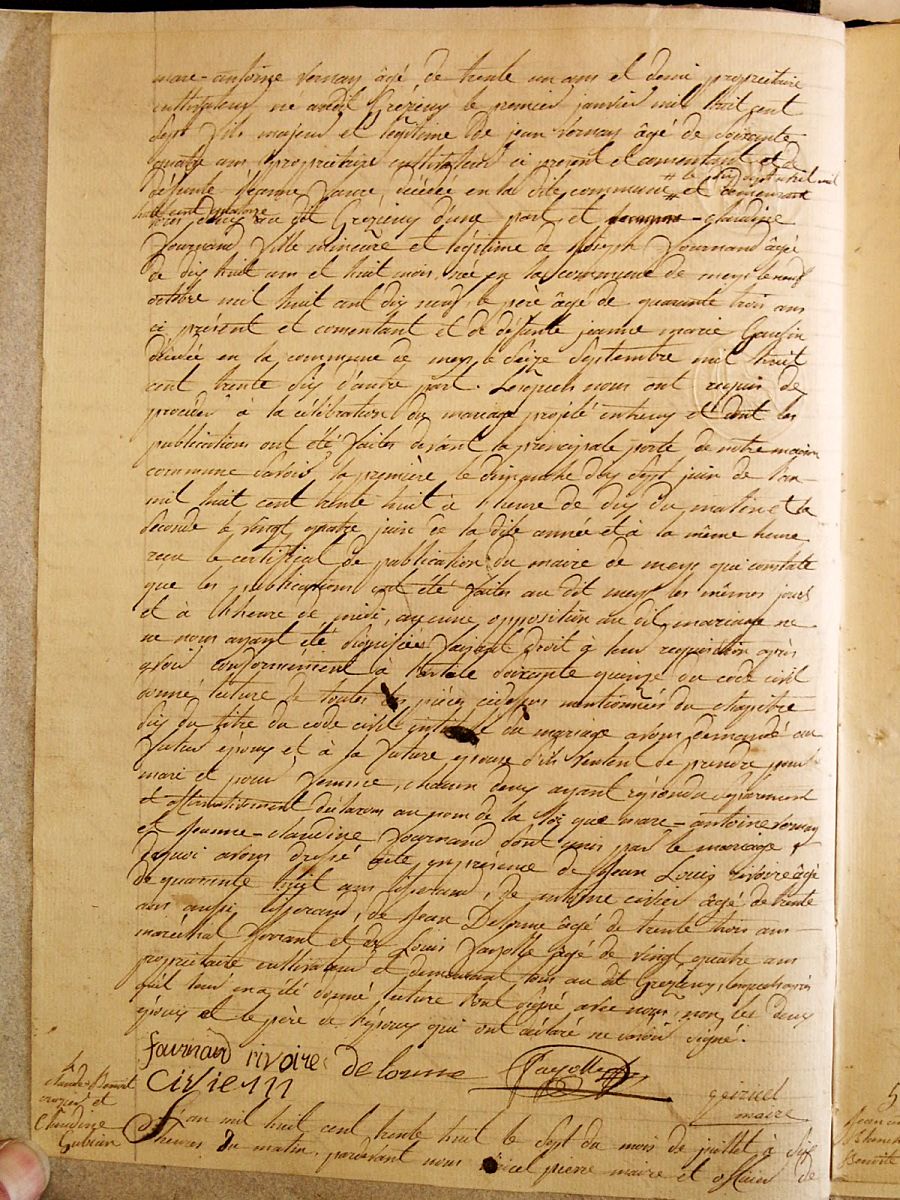 marc-antoine Vernay âgé de trente un ans et demi propriétaire
cultivateur né audit Grézieu le premier janvier mil huit cent
sept fils majeur et légitime de jean Vernay âgé de soixante
quatre ans propriétaire cultivateur ci présent et consentant et de
défunte jeanne décédée en la dite commune # et demeurant
# le dix sept avril mil
huit cent quatorze
au dit Grézieu d'une part, et jeanne-claudine
Fournand fille mineure et légitime de Joseph Fournand âgée
de dix huit ans et huit mois née en la commune de meys le neuf
octobre mil huit cent dix neuf, le père âgé de quarante trois ans
ci présent et consentant et de défunte jeanne marie
décédée en la commune de meys le seize septembre mil huit
cent trente six d'autre part. Lesquels nous ont requis de
procéder à la célébration du mariage projeté entr'eux et dont les
publications ont été faites devant la principale porte de notre maison
commune savoir la première le dimanche dix sept juin de l'an
mil huit cent trente huit à l'heure de dix du matin et la
seconde le vingt quatre juin de la dite année et à la même heure
reçu le certificat de publication du maire de meys qui constate
que les publications ont été faites au dit meys les mêmes jours
et à l'heure de midi, aucune opposition au dit mariage ne
ne nous ayant été signifiée faisant droit à leur réquisition après
avoir conformément à l'article soixante quinze du code civil
donné lecture de toutes les pièces cidessus mentionnées du chapitre
six du titre du code civil intitulé du mariage avons demandé au
futur époux et à la future épouse s'ils veulent se prendre pour
mari et pour femme, chacun deux ayant répondu séparément
et affirmativement déclarons au nom de la loi que marc-antoine Vernay
et Jeanne-claudine Fournand sont unis par le mariage
de quoi avons dressé acte en présence de Jean Louis rivoire âgé
de quarante huit ans tisserand, de antoine civier âgé de trente
ans aussi tisserand, de Jean Delorme âgé de trente trois ans
maréchal ferrant et de Louis Fayolle âgé de vingt quatre ans
propriétaire cultivateur et demeurant tous au dit Grézieu, lesquels après
qu'il leur en a été donné lecture ont signé avec nous, non les deux
époux et le père de l'époux qui ont déclaré ne savoir signé.
fournand rivoire delorme Fayolle
Civier
maire
claude-Benoit
et
Claudine
L'an mil huit cent trente huit le sept du mois de juillet à six
heures du matin, pardevant nous pierre maire et officier de
5